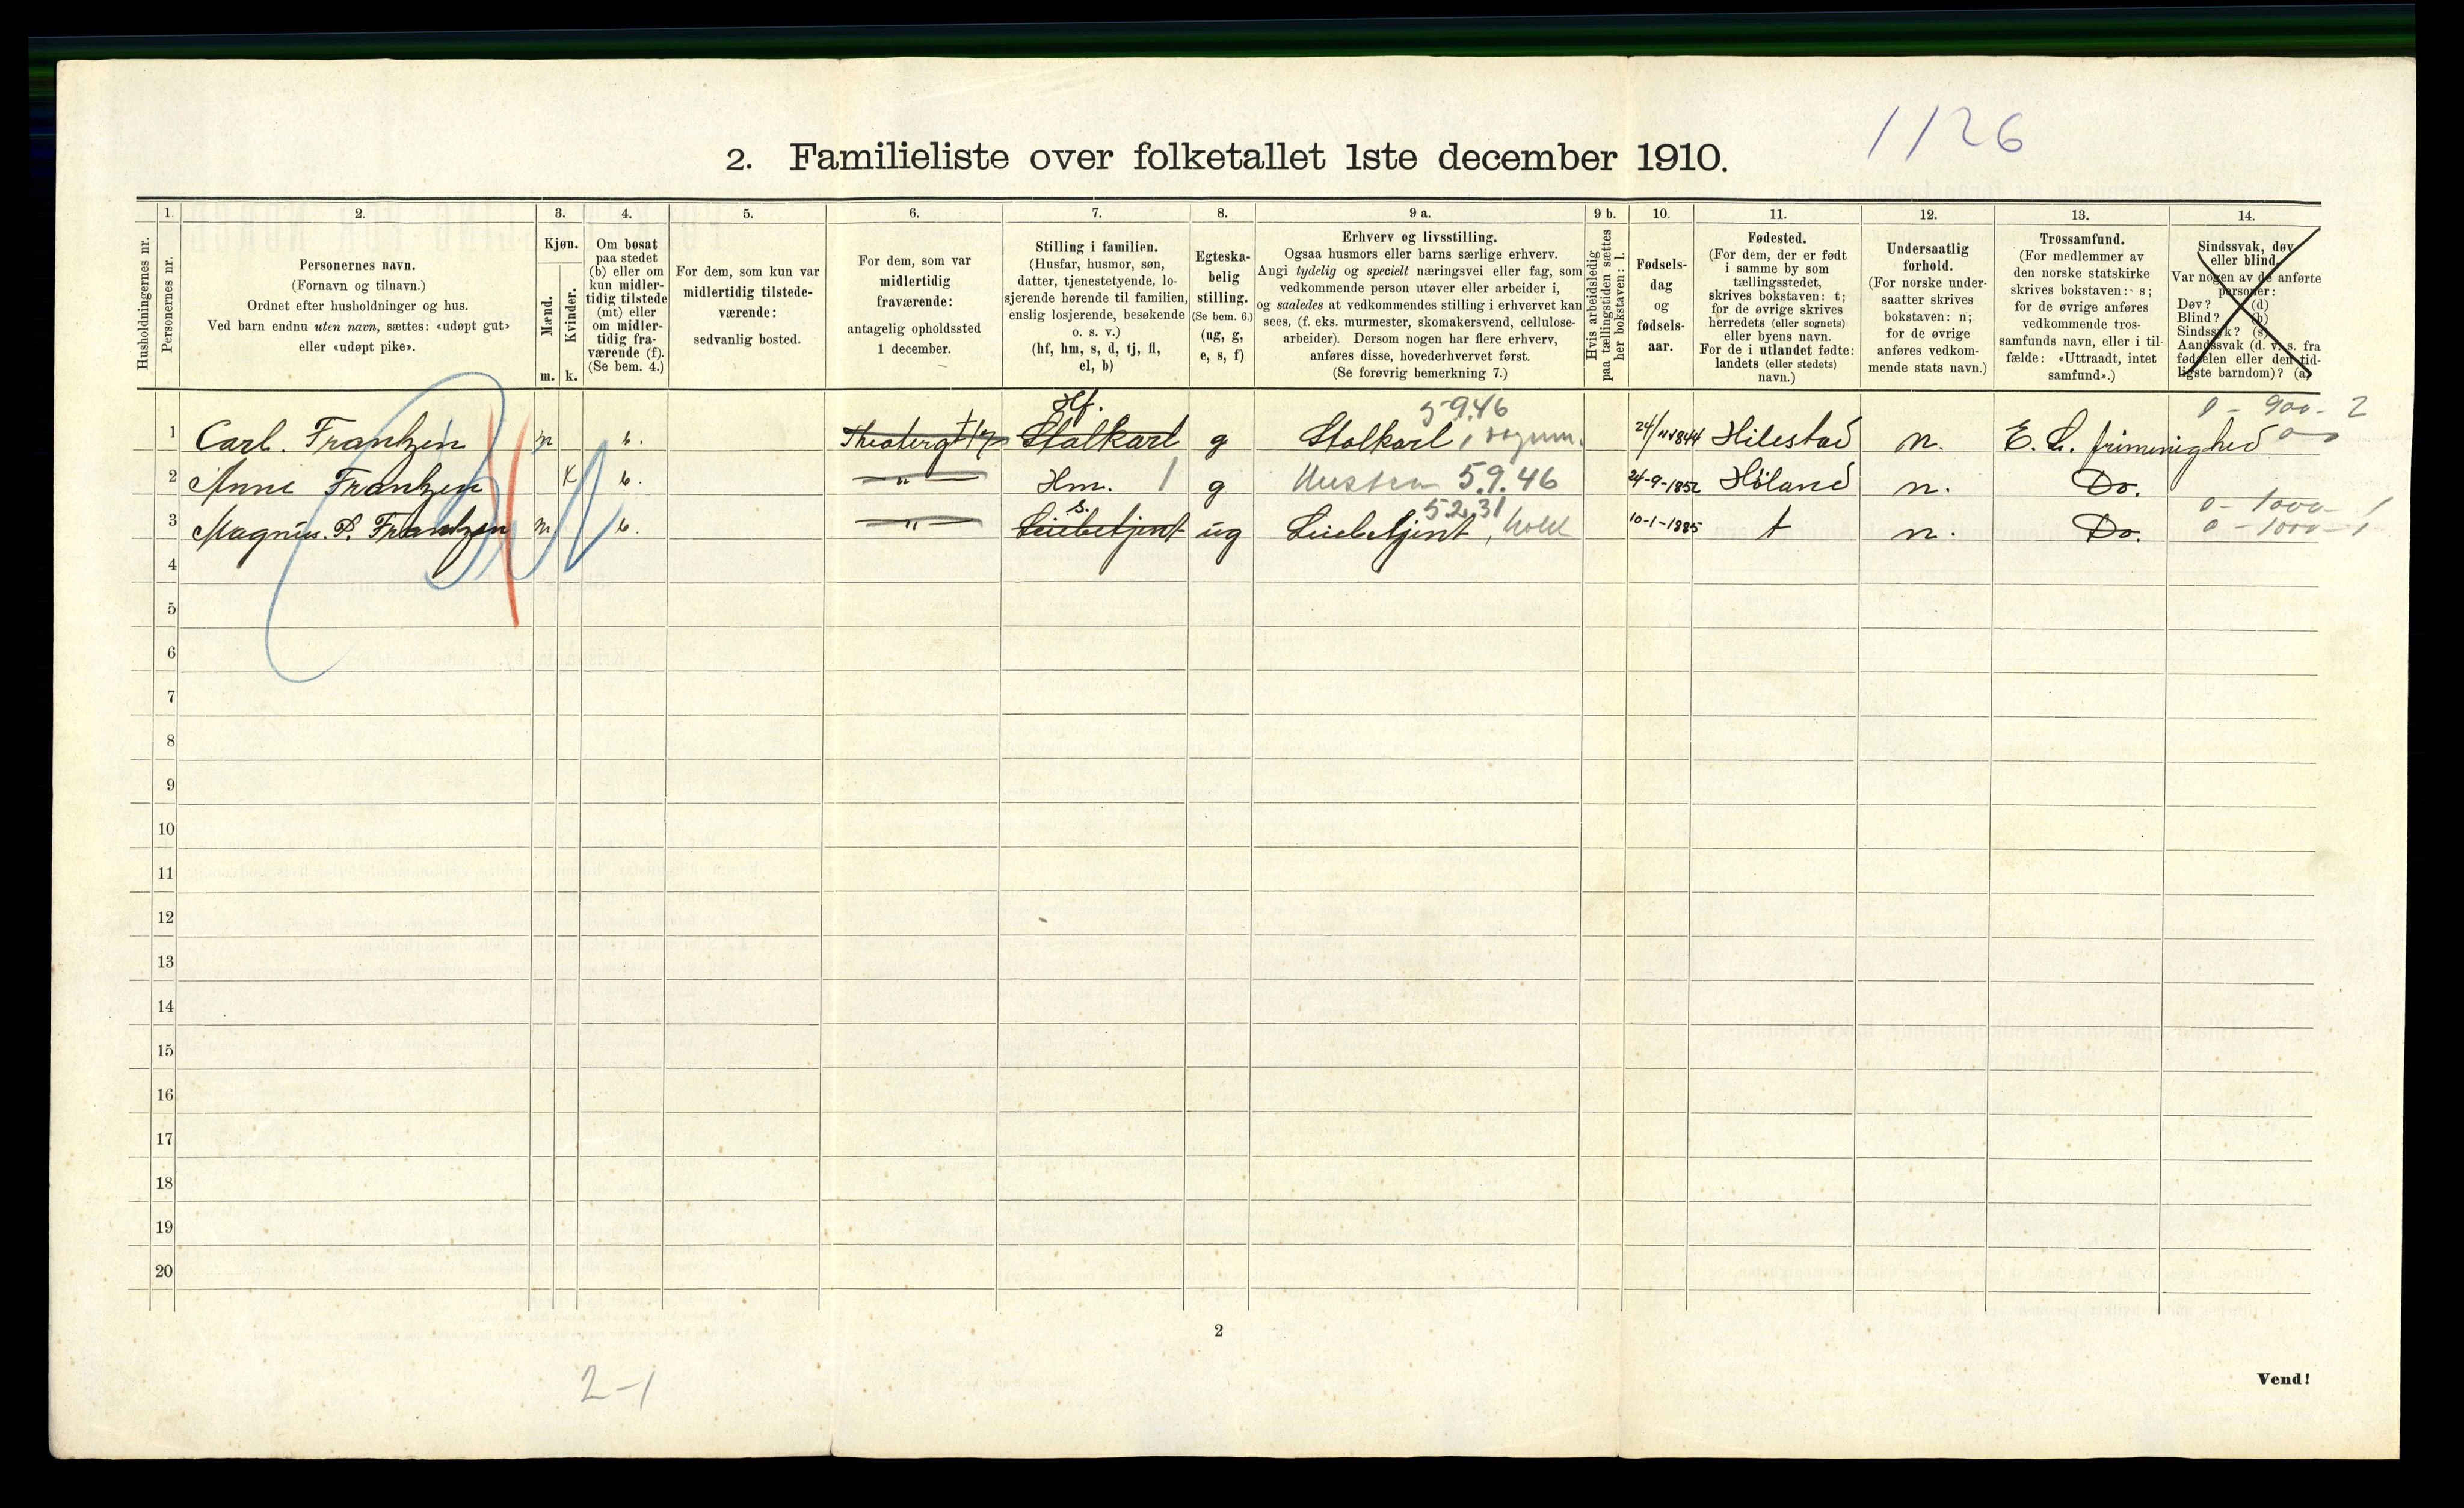 1126
2. Familieliste over folketallet 1ste december 1910.
Husholdningernes nr.
1.
Personernes nr.
2.
Personernes navn.
(Fornavn og tilnavn.)
Ordnet efter husholdninger og hus.
Ved barn endnu uten navn, sættes: «udøpt gut»
eller «udøpt pike».
3.
Kjøn.
Mænd.
Kvinder.
m. k.
4.
Om bosat
paa stedet
(b) eller om
kun midler-
tidig tilstede
(mt) eller
om midler-
tidig fra-
værende (f).
(Se bem. 4.)
5.
For dem, som kun var
midlertidig tilstede-
værende:
sedvanlig bosted.
6.
For dem, som var
midlertidig
fraværende:
antagelig opholdssted
1 december.
7.
Stilling i familien.
(Husfar, husmor, søn,
datter, tjenestetyende, lo-
sjerende hørende til familien,
enslig losjerende, besøkende
o. s. v.)
(hf, hm, s, d, tj, fl,
el, b)
8.
Egteska-
belig
stilling.
(Se bem. 6.)
(ug, g,
e, s, f)
9 a.
Erhverv og livsstilling.
Ogsaa husmors eller barns særlige erhverv.
Angi tydelig og specielt næringsvei eller fag, som
vedkommende person utøver eller arbeider i,
og saaledes at vedkommendes stilling i erhvervet kan
sees, (f. eks. murmester, skomakersvend, cellulose-
arbeider). Dersom nogen har flere erhverv,
anføres disse, hovederhvervet først.
(Se forøvrig bemerkning 7.)
9 b.
Hvis arbeidsledig
paa tællingstiden sættes
her bokstaven: l.
10.
Fødsels-
dag
og
fødsels-
aar.
11.
Fødested.
(For dem, der er født
i samme by som
tællingsstedet,
skrives bokstaven: t;
for de øvrige skrives
herredets (eller sognets)
eller byens navn.
For de i utlandet fødte:
landets (eller stedets)
navn.)
12.
Undersaatlig
forhold.
(For norske under-
saatter skrives
bokstaven: n;
for de øvrige
anføres vedkom-
mende stats navn.)
13.
Trossamfund.
(For medlemmer av
den norske statskirke
skrives bokstaven: s;
for de øvrige anføres
vedkommende tros-
samfunds navn, eller i til-
fælde: «Uttraadt, intet
samfund».)
14.
Sindssvak, døv
eller blind.
Var nogen av de anførte
personer:
Døv? (d)
Blind? (b)
Sindssvk? (s)
Aandssvak (d. v. s. fra
fødselen eller den tid-
ligste barndom)? (a)
Hf. 59.46 0 - 900 - 2
1 Carl. Frantzen m b. Stalkarl g Stalkarl, 24/11 1844 Hilestad n. E. L. frimenighed
2 Anne Frantzen K b. " Hm. 1 g Hustru 5.9.46 24-9-1852 Høland n. Do.
s. 52.31 0 - 1000 - 1
3 Magnus. P. Frantzen m b. " ug 10-1-1885 t n. Do. 0 - 1000 - 1
4
5
6
7
8
9
10
11
12
13
14
15
16
17
18
19
20
2
2-1
Vend!